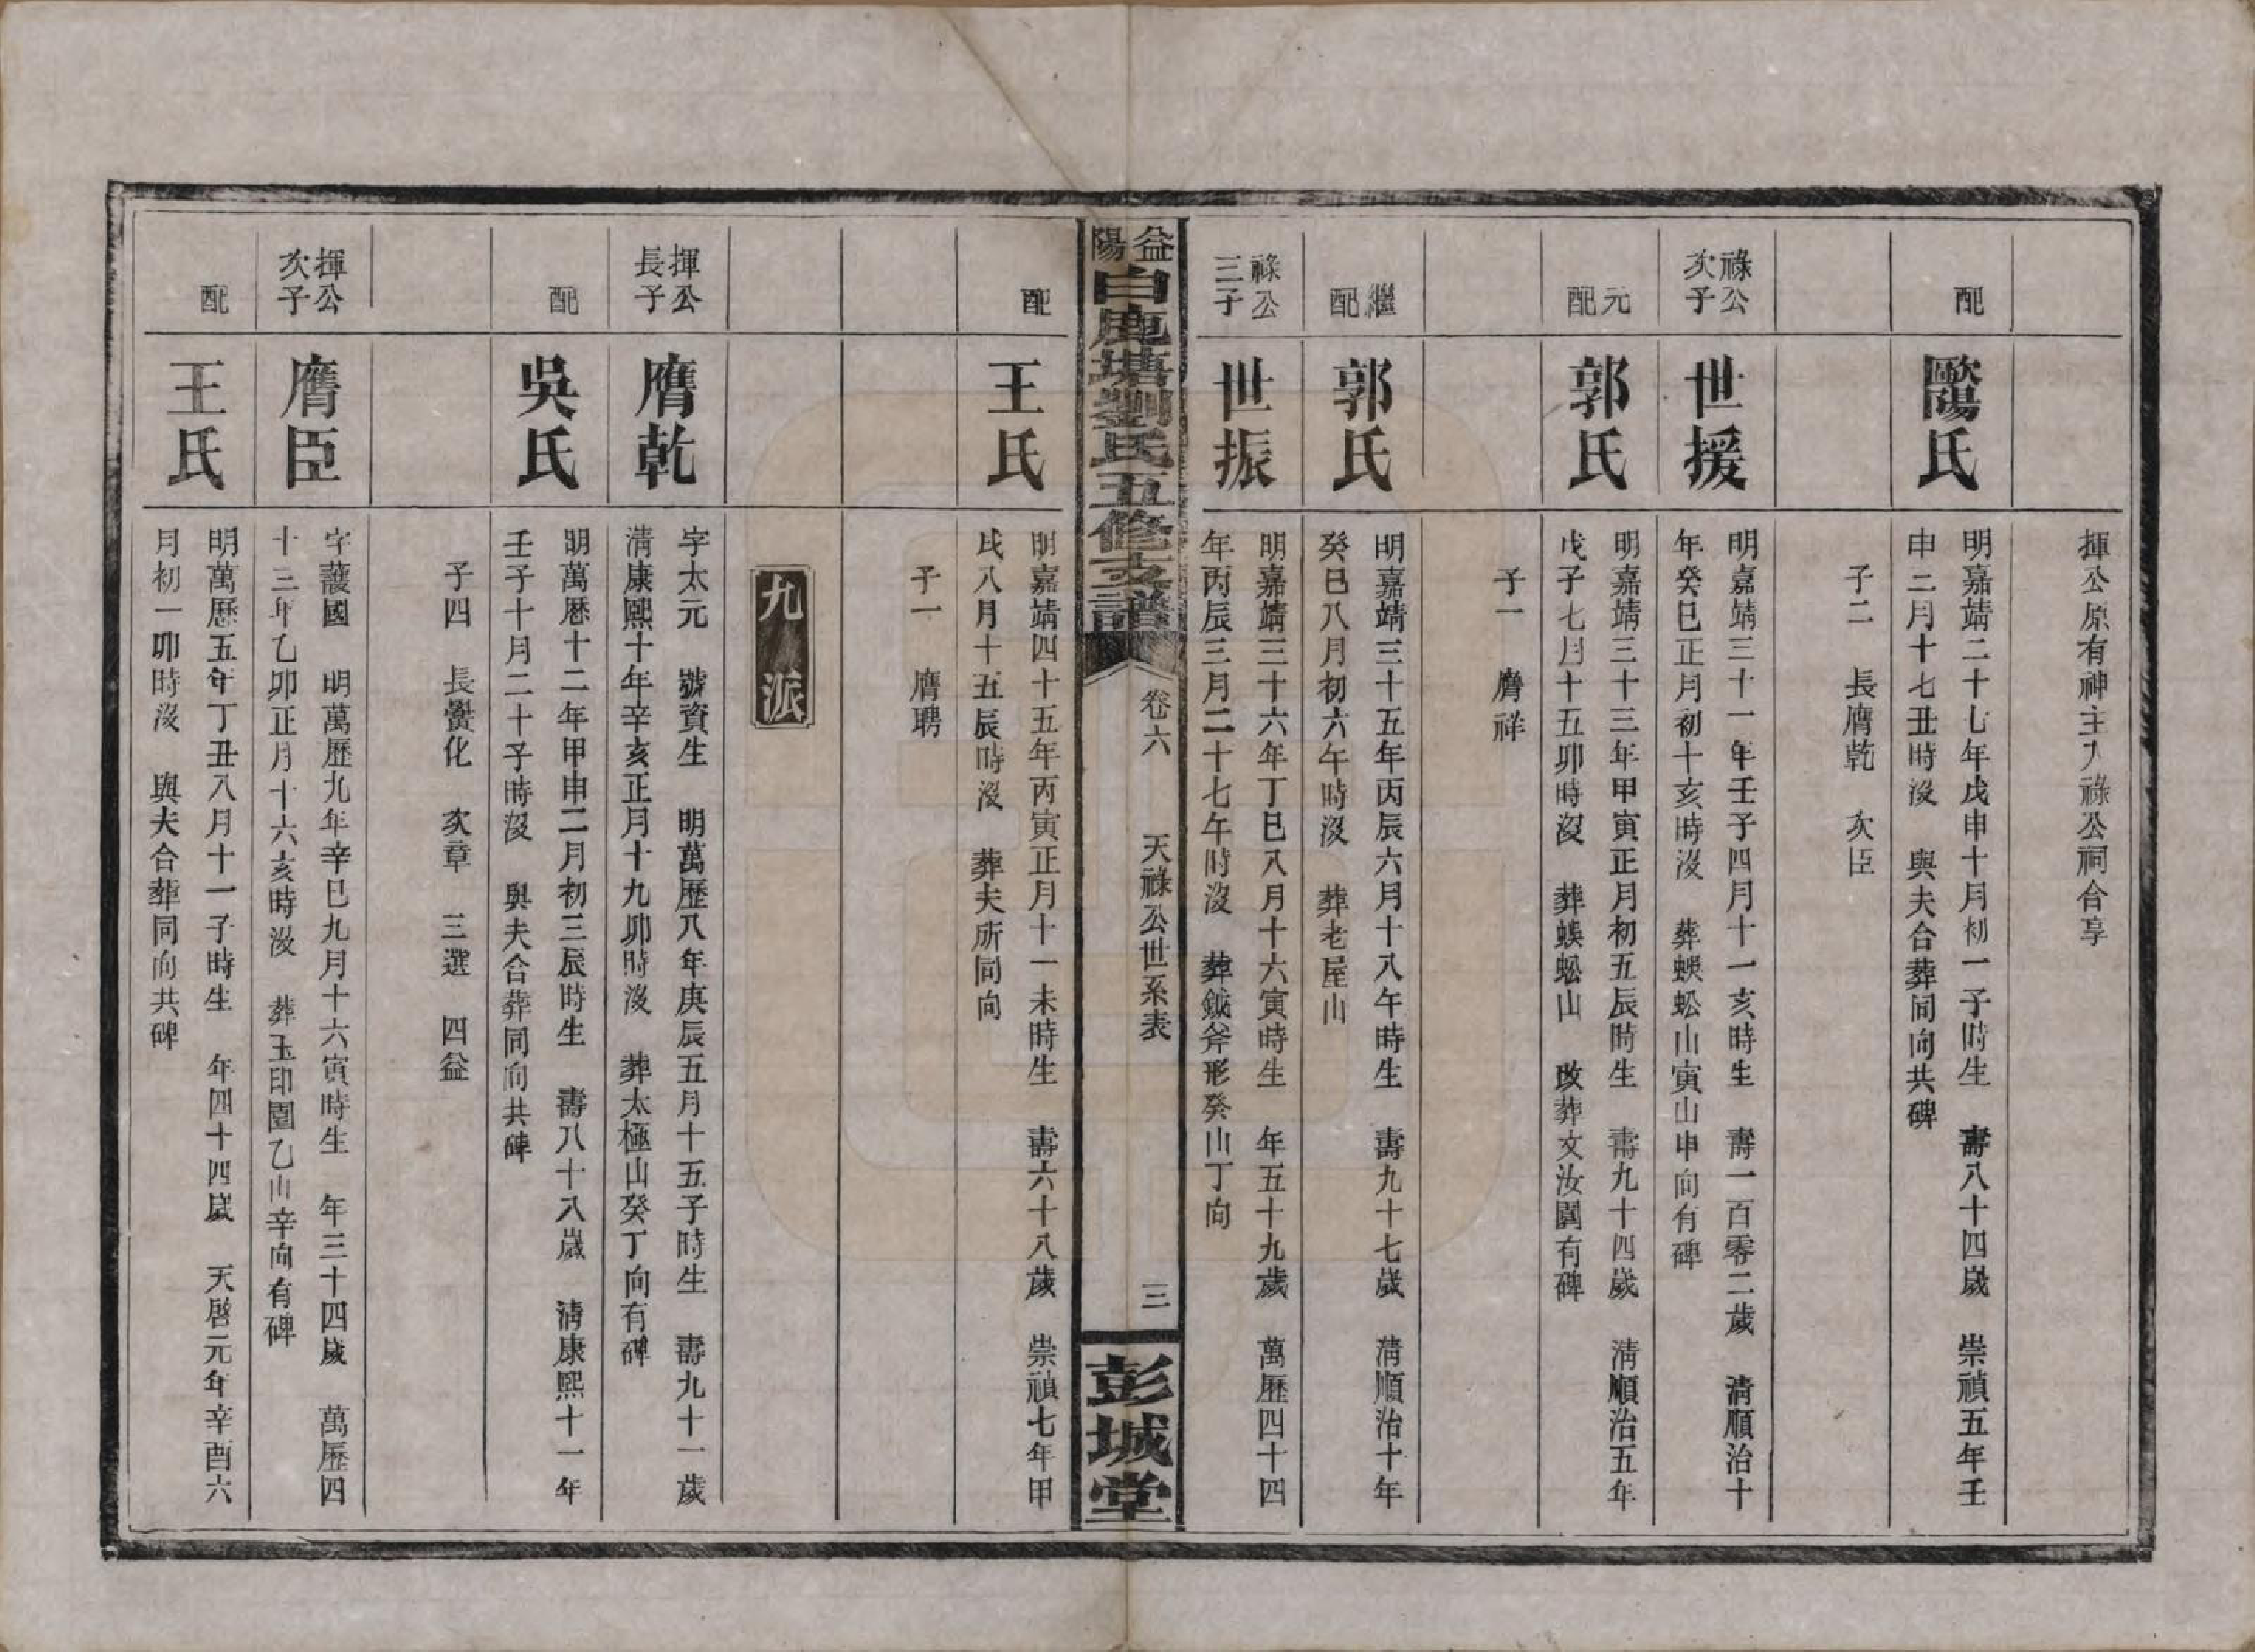 揮公原有神主入祿公祠合享
配
歐陽氏
明嘉靖二十七年戊申十月初一子時生 壽八十四歲 崇禎五年壬
申二月十七丑時沒 與夫合葬同向共碑
子二 長膺乾 次臣
祿公
次子
世援
明嘉靖三十一年壬子四月十一亥時生 壽一百零二歲 清順治十
年癸巳正月初十亥時沒 葬蜈蚣山寅山申向有碑
元
配
郭氏
明嘉靖三十三年甲寅正月初五辰時生 壽九十四歲 清順治五年
戊子七月十五卯時沒 葬蜈蚣山 改葬文汝園有碑
子一 膺祥
繼
配
郭氏
明嘉靖三十五年丙辰六月十八午時生 壽九十七歲 清順治十年
癸巳八月初六午時沒 葬老屋山
祿公
三子
世振
明嘉靖三十六年丁巳八月十六寅時生 年五十九歲 萬歷四十四
年丙辰三月二十七午時沒 葬鉞斧形癸山丁向
益陽白鹿塘劉氏五修支譜
卷六 天祿公世系表
三
彭城堂
配
王氏
明嘉靖四十五年丙寅正月十一未時生 壽六十八歲 崇禎七年甲
戌八月十五辰時沒 葬夫所同向
子一 膺聘
九派
揮公
長子
膺乾
字太元 號資生 明萬歷八年庚辰五月十五子時生 壽九十一歲
清康熙十年辛亥正月十九卯時沒 葬太極山癸丁向有碑
配
吳氏
明萬歷十二年甲申二月初三辰時生 壽八十八歲 清康熙十一年
壬子十月二十子時沒 與夫合葬同向共碑
子四 長黌化 次章 三選 四益
揮公
次子
膺臣
字護國 明萬歷九年辛巳九月十六寅時生 年三十四歲 萬歷四
十三年乙卯正月十六亥時沒 葬玉印園乙山辛向有碑
配
王氏
明萬歷五年丁丑八月十一子時生 年四十四歲 天啓元年辛酉六
月初一卯時沒 與夫合葬同向共碑